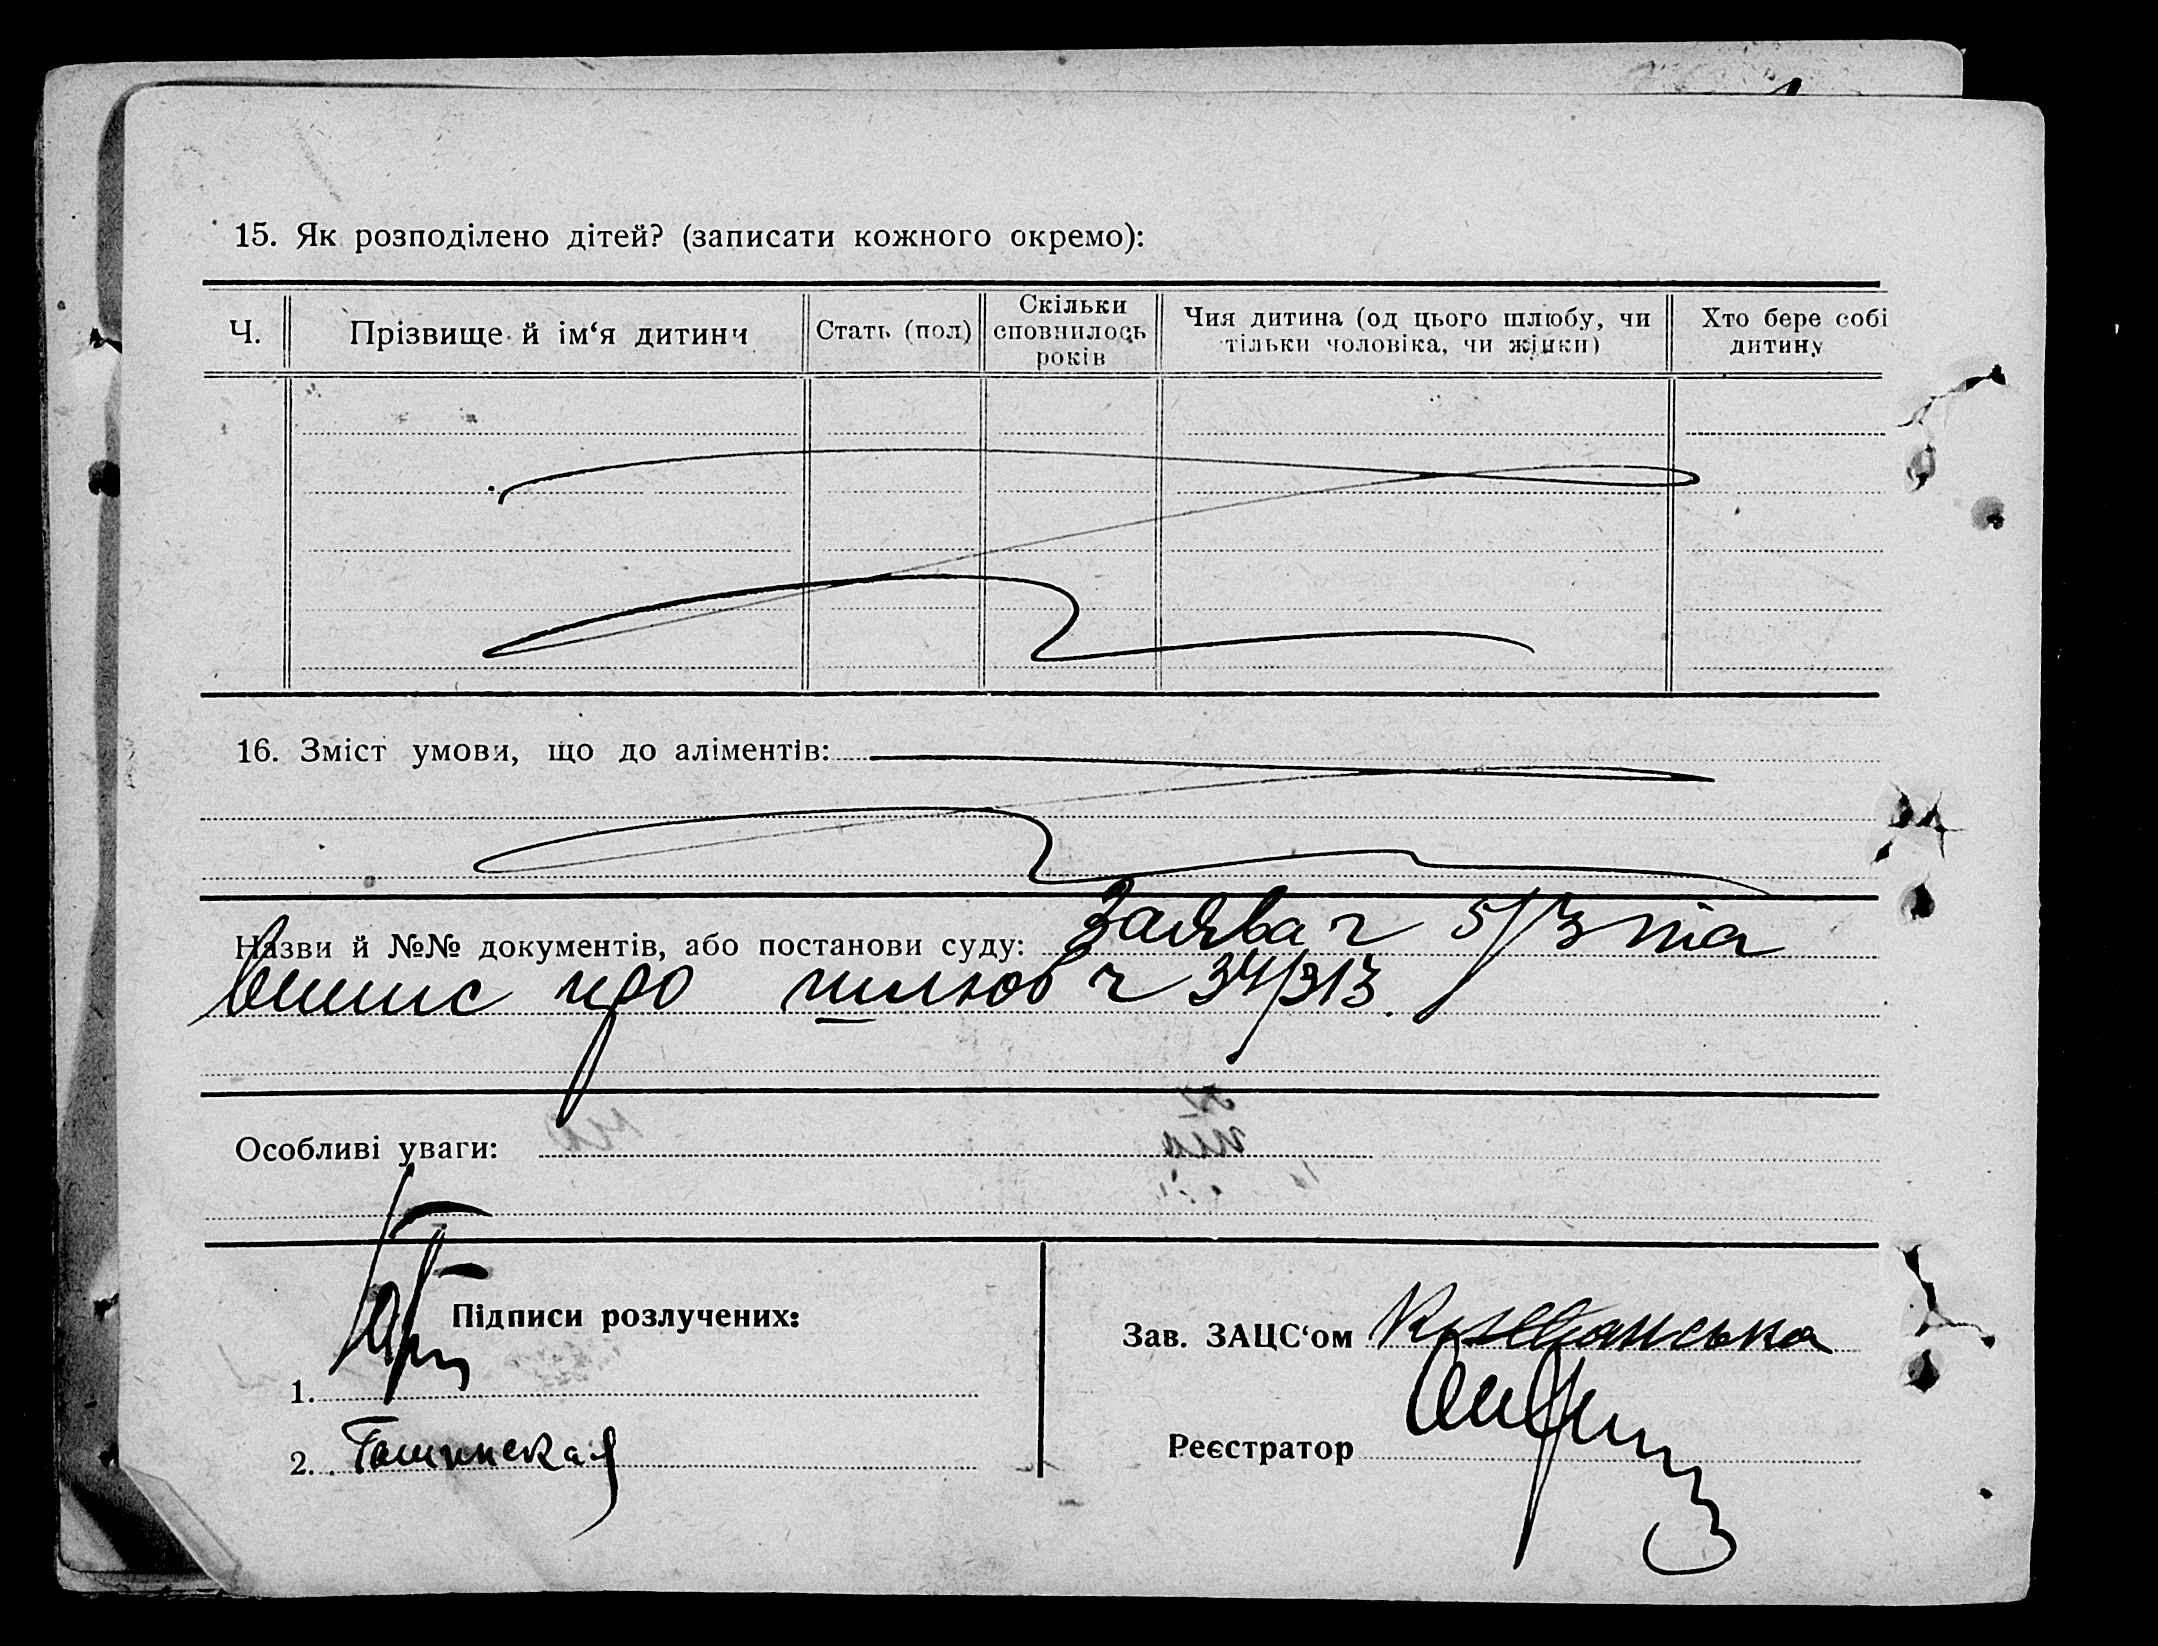 15. Як розподілено дітей? (записати кожного окремо):
Ч. Прізвище й ім‘я дитини Стать (пол) Скільки сповнилось років Чия дитина (од цього шлюбу, чи тільки чоловіка, чи жінки) Хто бере собі дитину
16. Зміст умови, що до аліментів:
Назви й №№ документів, або постанови суду: Заява ч 5/3 та
випис про шлюб ч 34/313.
Особливі уваги:
Підписи розлучених:
Зав. ЗАЦС‘ом
1.
Реєстратор
2.